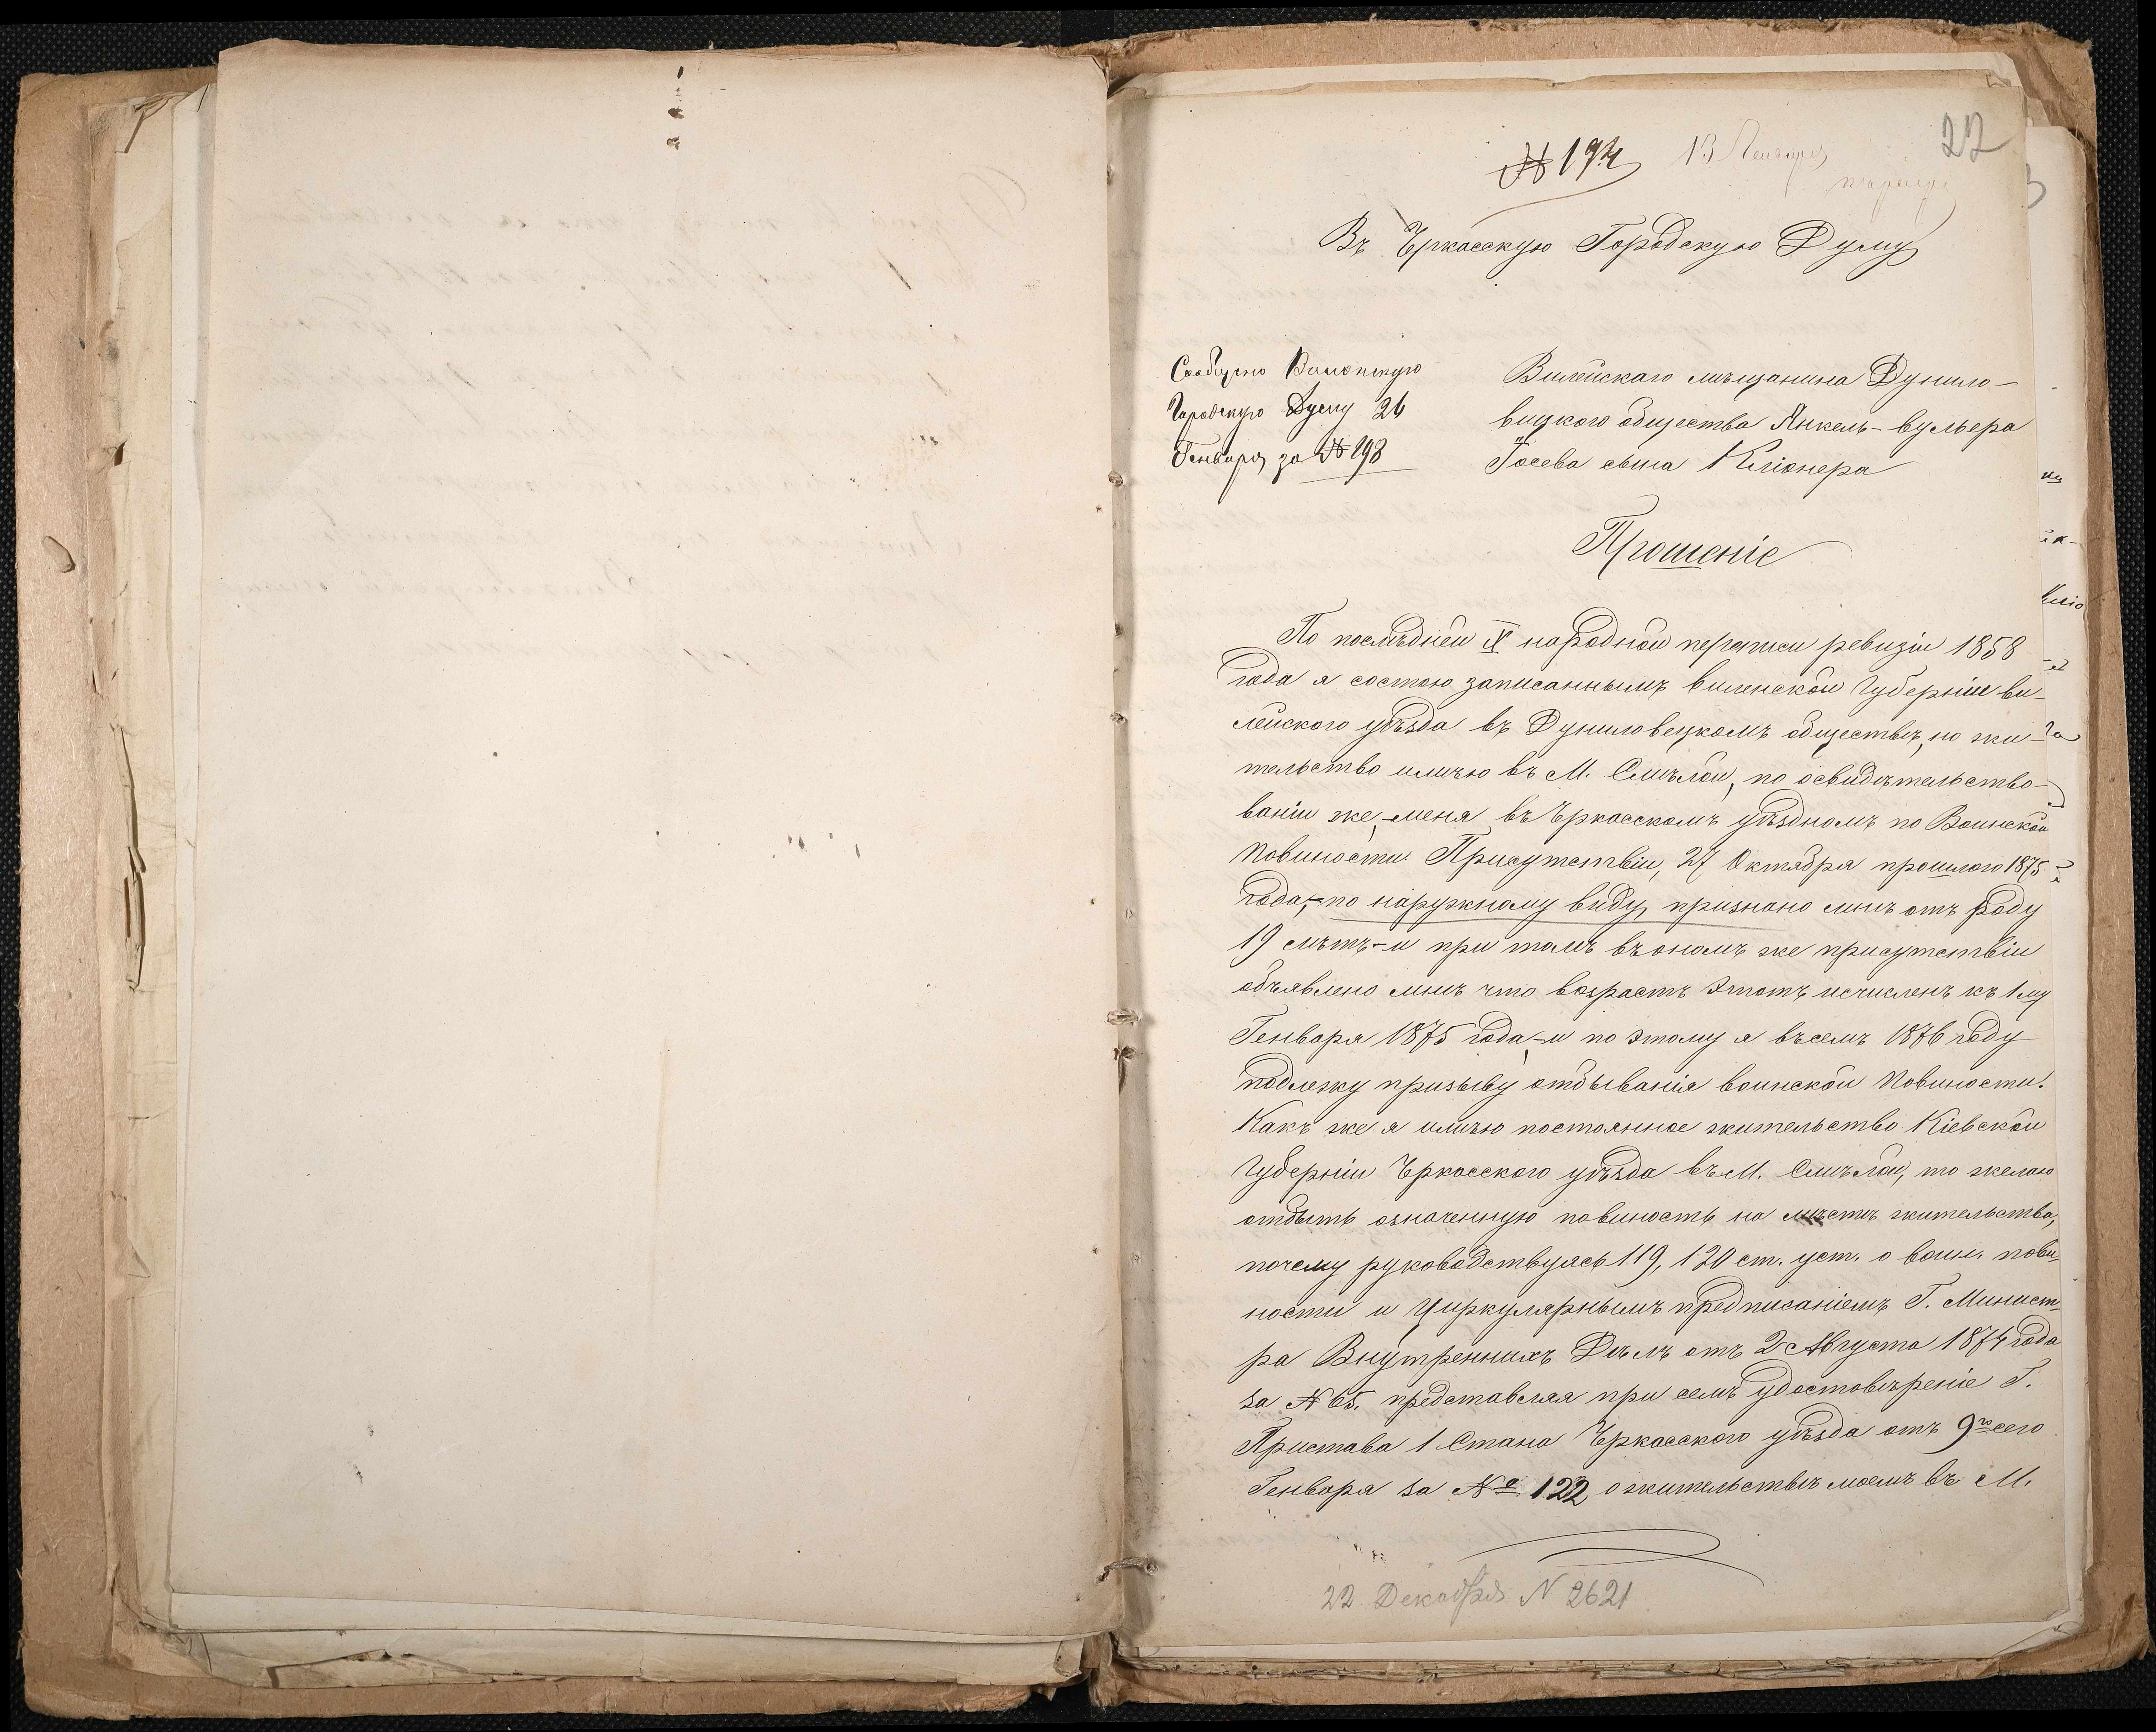 22
№ 194 13 Генваря
Въ Чркасскую Городскую Думу
Сообщено Виленскую
Городскую Думу 26
Генваря за № 298
Вилейскаго мѣщанина Дунило-
вицкого общества Янкель-вульера
Іосева сына Клионера
Прошеніе
По послѣдней X народной переписи ревизіи 1858
года я состою записаннымъ виленской Губерніи ви-
лейского уѣзда въ Дуниловецкомъ обществѣ, но жи-
тельство имѣю въ М. Смѣлой, по освидѣтельство-
ваніи же, меня въ Чркасскомъ уѣздномъ по Воинской
Повиности Присутствіи, 27 Октября прошлого 1875
года,-по наружному виду, признано мнѣ отъ роду
19 лѣтъ-и при томъ въ ономъ же присутствіи
объявлено мнѣ что возрастъ этотъ исчисленъ къ 1му
Генваря 1875 года,-и по этому я въ семъ 1876 году
подлежу призыву отбыванія воинской Повиности.
Какъ же я имѣю постоянное жительство Кіевской
Губерніи Чркасского уѣзда въ М. Смѣлой, то желаю
отбыть означенную повиность на мѣстѣ жительства,
почему руководствуясь 119, 120 ст. уст. о воин. пови-
ности и Циркулярнымъ предписаніемъ Г. Минист-
ра Внутреннихъ Дѣлъ отъ 2 Августа 1874 года
за № 65. представляя при семъ удостовѣреніе Г.
Пристава 1 Стана Чркасского уѣзда отъ 9го сего
Генваря за № 122 о жительствѣ моемъ въ М.
22 Декабря N 2621